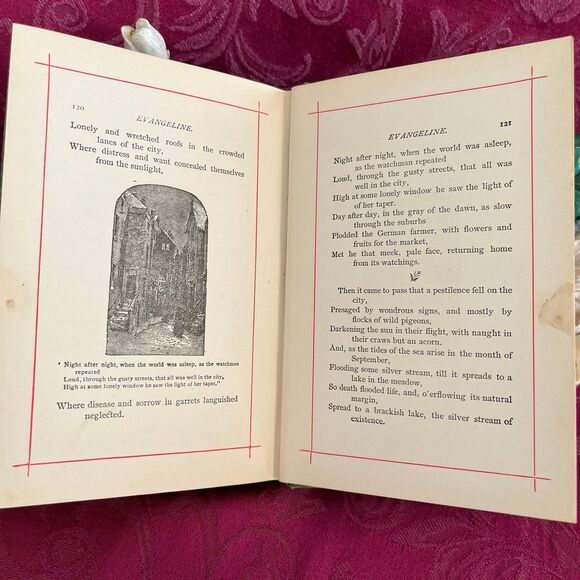 120
EVANGELINE.
Lonely and wretched roofs in the crowded
lanes of the city,
Where distress and want concealed themselves
from the sunlight,
" Night after night, when the world was asleep, as the watchman
repeated
Loud, through the gusty streets, that all was well in the city,
High at some lonely window he saw the light of her taper."
Where disease and sorrow in garrets languished
neglected.
EVANGELINE.
121
Night after night, when the world was asleep,
as the watchman repeated
Loud, through the gusty streets, that all was
well in the city,
High at some lonely window he saw the light
of her taper.
Day after day, in the gray of the dawn, as slow
through the suburbs
Plodded the German farmer, with flowers and
fruits for the market,
Met he that meek, pale face, returning home
from its watchings.
Then it came to pass that a pestilence fell on the
city,
Presaged by wondrous signs, and mostly by
flocks of wild pigeons,
Darkening the sun in their flight, with naught in
their craws but an acorn.
And, as the tides of the sea arise in the month of
September,
Flooding some silver stream, till it spreads to a
lake in the meadow,
So death flooded life, and, o'erflowing its natural
margin,
Spread to a brackish lake, the silver stream of
existence.